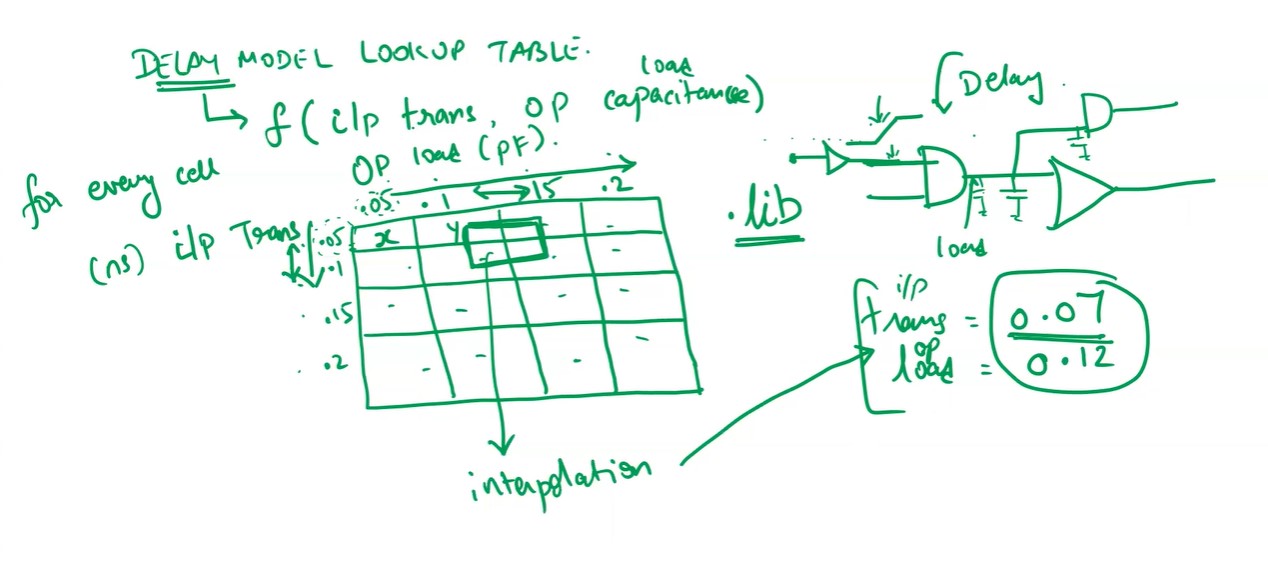 DELAY MODEL LOOKUP TABLE.
f( i/p trans, OP load capacitance)
for every cell
OP load (pF).
.05 .1 15 .2
(ns) i/p Trans
.05 x y
.1
.15
.2
interpolation
.lib
Delay
load
i/p
trans = 0.07
op
load = 0.12